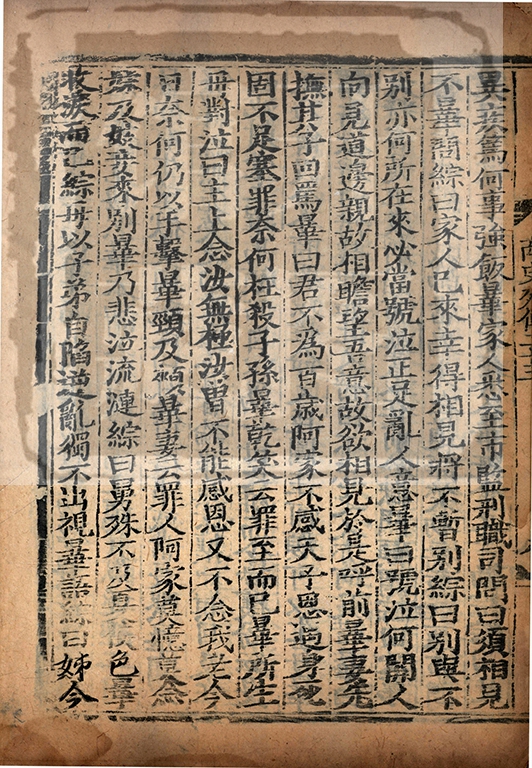 異苔爲何事強飯畢家人悉至市監刑職司問曰須相見
不畢問綜曰家人已來幸得相見將不暫別綜曰別與不
別亦何所在來必當號泣正足亂人意畢曰號泣何關人
向見道邊親故相瞻望吾意故欲相見於是呼前畢妻先
撫其子回罵畢曰君不為百歲阿家不感天子恩遇身死
固不足塞罪奈何枉殺子孫畢乾笑云罪至而已畢所生
母對泣曰主上念汝無極汝曾不能感恩又不念我老今
日奈何仍以手擊畢頸及頰畢妻云罪人阿家莫憶莫念
妹及妓妾來別畢乃悲泣流漣綜曰舅殊不及夏侯色畢
收淚而已綜母以子弟自陷逆亂獨不出視畢語綜曰姊今